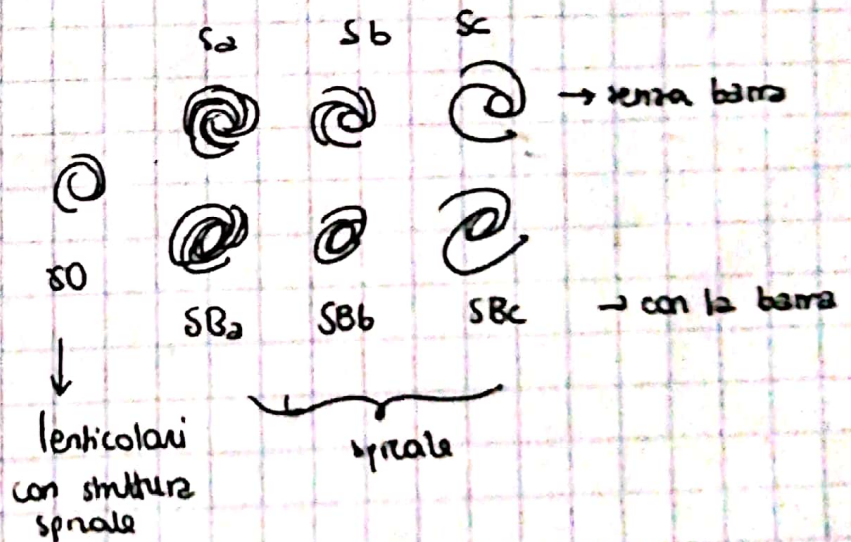 Sa Sb Sc
→ senza barra
S0
SBa SBb SBc → con la barra
lenticolari
con struttura
spirale
spirale